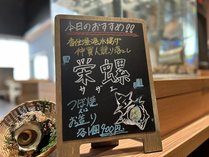 本日のおすすめ!!
香住漁港水揚げ
仲買人競り落とし
栄螺
サザエ
つぼ焼
又は
お造り
各1個900円